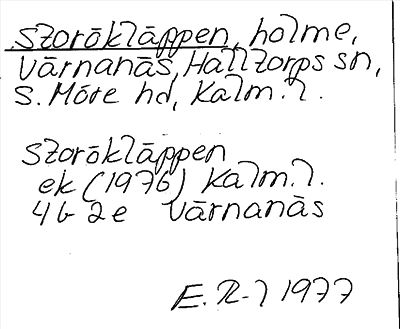 Storökläppen, holme,
Värnanäs, Halltorps sn,
S. Möre hd, Kalm. l.
Storökläppen
ek (1976) Kalm. l.
4 G 2 e Värnanäs
E. R-l 1977